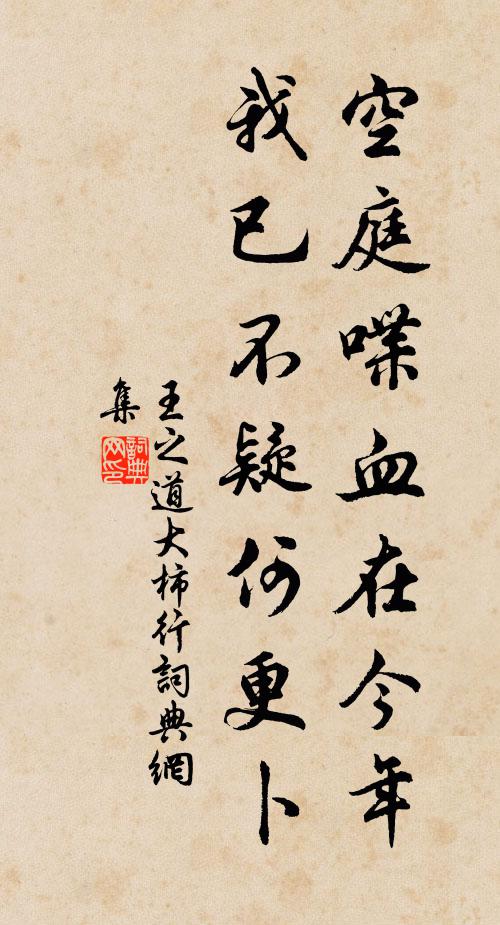 空庭喋血在今年
我已不疑何更卜
王之道大柿行詞典網
集
詞典網印